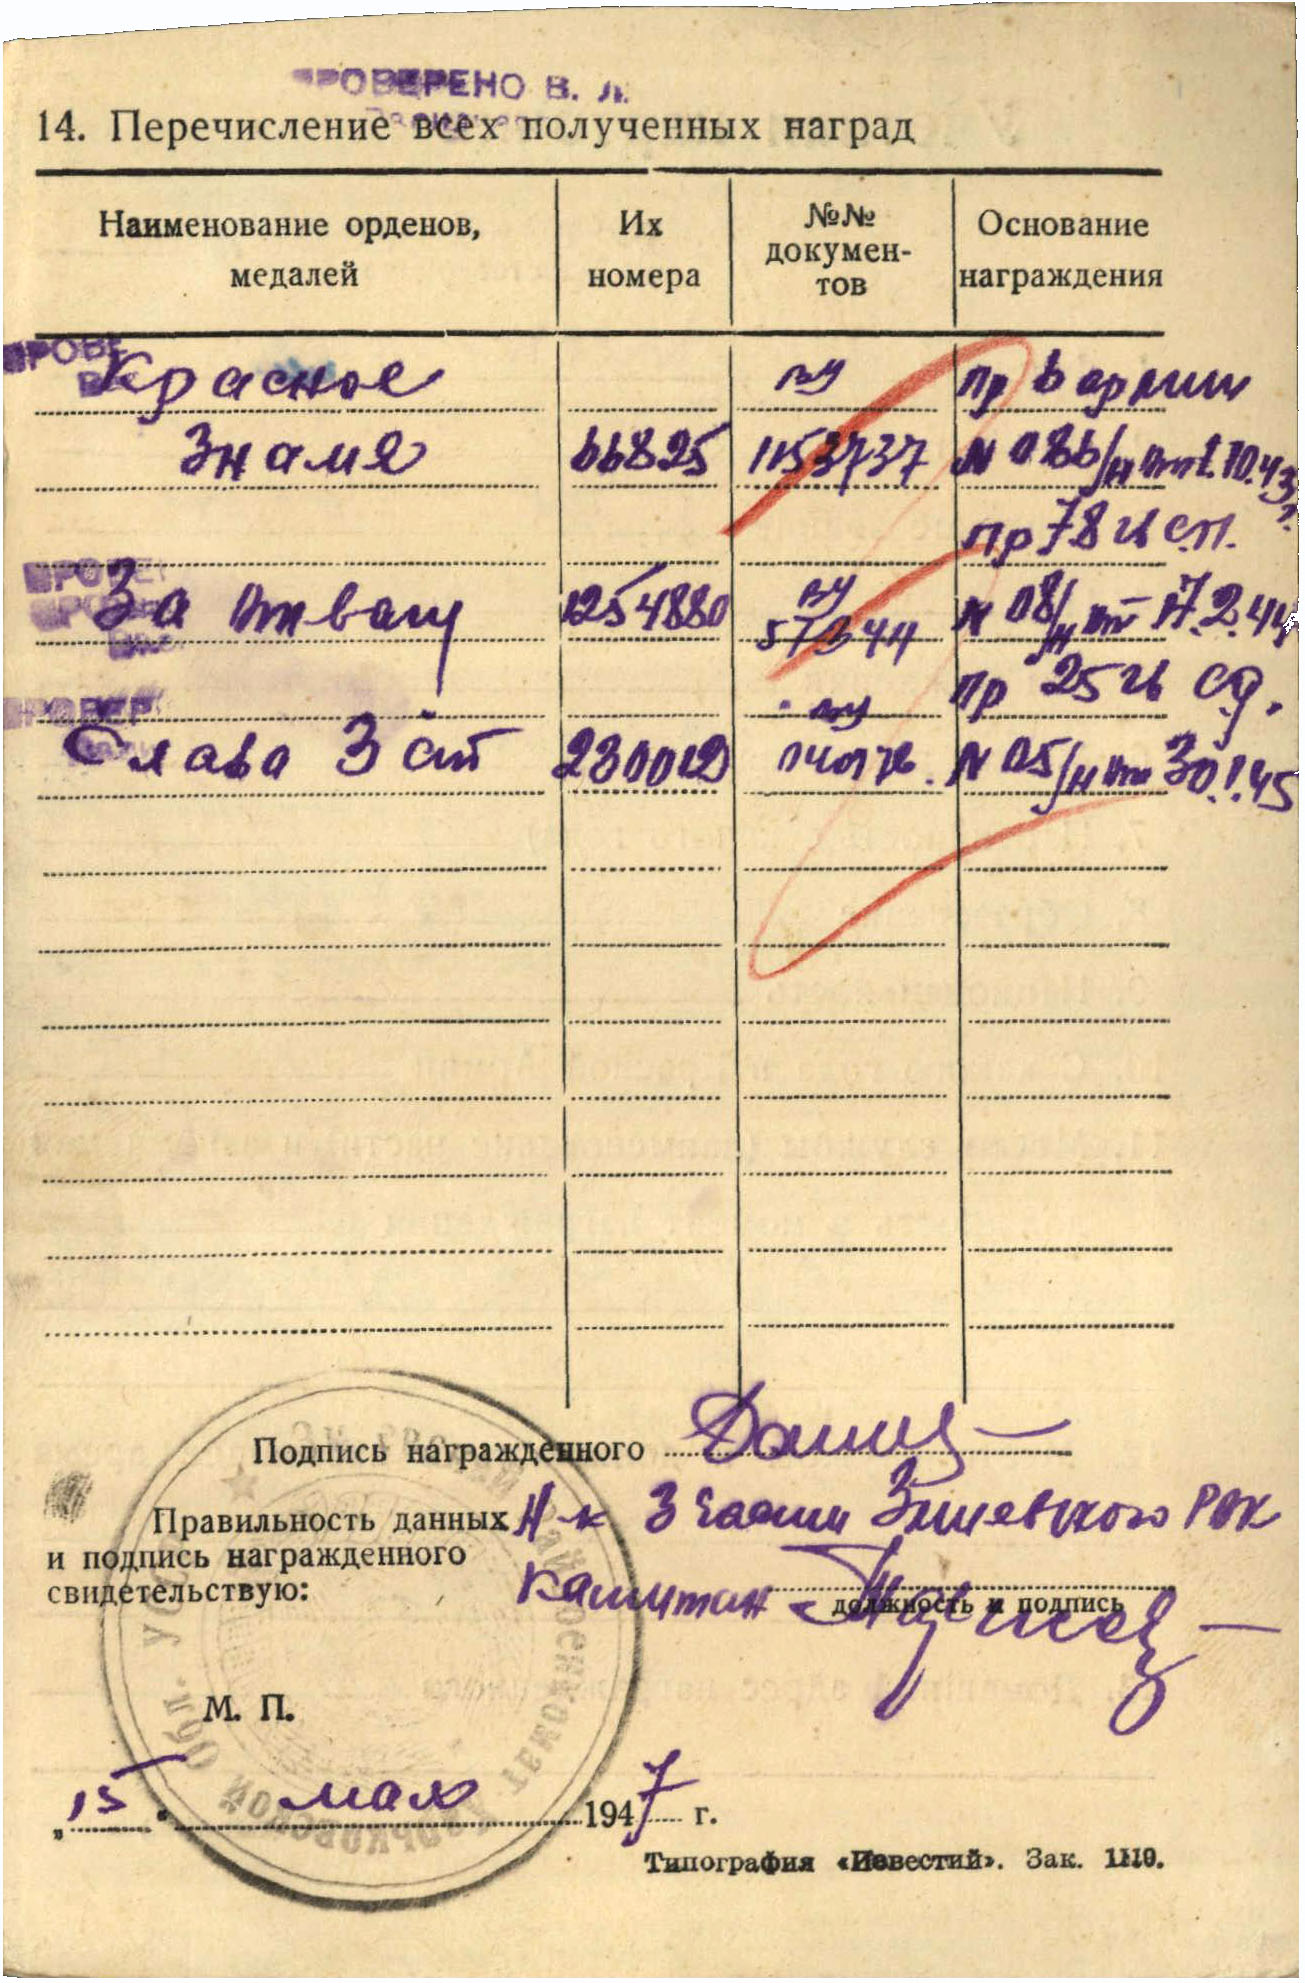 ПРОВЕРЕНО В. Л.
14. Перечисление всех полученных наград
Наименование орденов, медалей
Их номера
№№ докумен-тов
Основание награждения
Красное
Знамя 66825 1153737
пр 6 армии
N 086/н от 1.10.43
За отвагу 1254880
пр 78 гв сп.
N 08/н от 17.2.44
Слава 3 ст
пр 25 гв сд.
N 05/н от 30.1.45
Подпись награжденного
Правильность данных
и подпись награжденного
свидетельствую:
Н-к 3 части Змиевского РВК
капитан
должность и подпись
М. П.
„15“ мая 1947 г.
Типография «Известий». Зак. 1110.